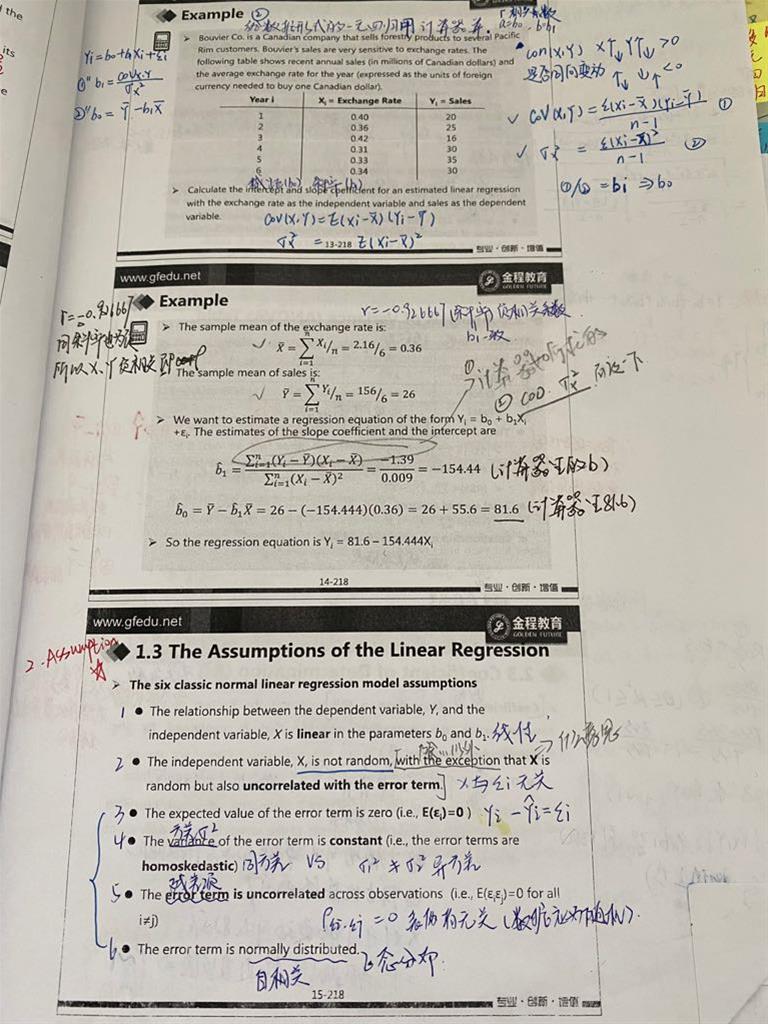 Example ②
给数据形式的一元四归用计算器算.
a=b₀ b=b₁
Bouvier Co. is a Canadian company that sells forestry products to several Pacific
Rim customers. Bouvier's sales are very sensitive to exchange rates. The
following table shows recent annual sales (in millions of Canadian dollars) and
the average exchange rate for the year (expressed as the units of foreign
currency needed to buy one Canadian dollar).
Year i Xᵢ = Exchange Rate Yᵢ = Sales
1 0.40 20
2 0.36 25
3 0.42 16
4 0.31 30
5 0.33 35
6 0.34 30
截距(b₀) 斜率(b₁)
Calculate the intercept and slope coefficient for an estimated linear regression
with the exchange rate as the independent variable and sales as the dependent
variable.
COV(X,Y)=Σ(Xi-X̄)(Yi-Ȳ)
σx² = Σ(Xi-X̄)²
13-218
专业·创新·增值
Yi=b₀+b₁Xi+εi
①" b₁ = COVx,Y / σx²
②" b₀ = Ȳ-b₁X̄
X↑↓ Y↑↓ >0
是否同向变动 ↑↓ ↓↑ <0
COV(X,Y)=Σ(Xi-X̄)(Yi-Ȳ) / n-1 ①
σx² = Σ(Xi-X̄)² / n-1 ②
①/② =bi ⇒b₀
www.gfedu.net
金程教育
GOLDEN FUTURE
Example
r=-0.926667
同斜率也为负
所以X,Y负相关
r=-0.926667 (斜率 负相关系数
b₁一致
The sample mean of the exchange rate is:
X̄ = Σⁿᵢ₌₁ Xᵢ/n = 2.16/6 = 0.36
The sample mean of sales is:
Ȳ = Σⁿᵢ₌₁ Yᵢ/n = 156/6 = 26
② COV. σx²
We want to estimate a regression equation of the form Yᵢ = b₀ + b₁Xᵢ
+εᵢ. The estimates of the slope coefficient and the intercept are
b̂₁ = Σⁿᵢ₌₁(Yᵢ − Ȳ)(Xᵢ − X̄) / Σⁿᵢ₌₁(Xᵢ − X̄)² = −1.39 / 0.009 = −154.44 (计算器上的b)
b̂₀ = Ȳ − b̂₁X̄ = 26 − (−154.444)(0.36) = 26 + 55.6 = 81.6 (计算器上81.6)
So the regression equation is Yᵢ = 81.6 − 154.444Xᵢ
14-218
专业·创新·增值
www.gfedu.net
金程教育
GOLDEN FUTURE
2. Assumption ☆
1.3 The Assumptions of the Linear Regression
The six classic normal linear regression model assumptions
1 ● The relationship between the dependent variable, Y, and the
independent variable, X is linear in the parameters b₀ and b₁. 线性
2 ● The independent variable, X, is not random, [with the exception that X is
random but also uncorrelated with the error term.] X与εi无关
3 ● The expected value of the error term is zero (i.e., E(εᵢ)=0 ) Yi - Ŷi = εi
方差σ²
4 ● The variance of the error term is constant (i.e., the error terms are
homoskedastic) 同方差 VS σ₁² ≠ σ₂² 异方差
残差项
5 ● The error term is uncorrelated across observations (i.e., E(εᵢεⱼ)=0 for all
i≠j)
ρεi,εj =0
6 ● The error term is normally distributed. 正态分布.
自相关
15-218
专业·创新·增值